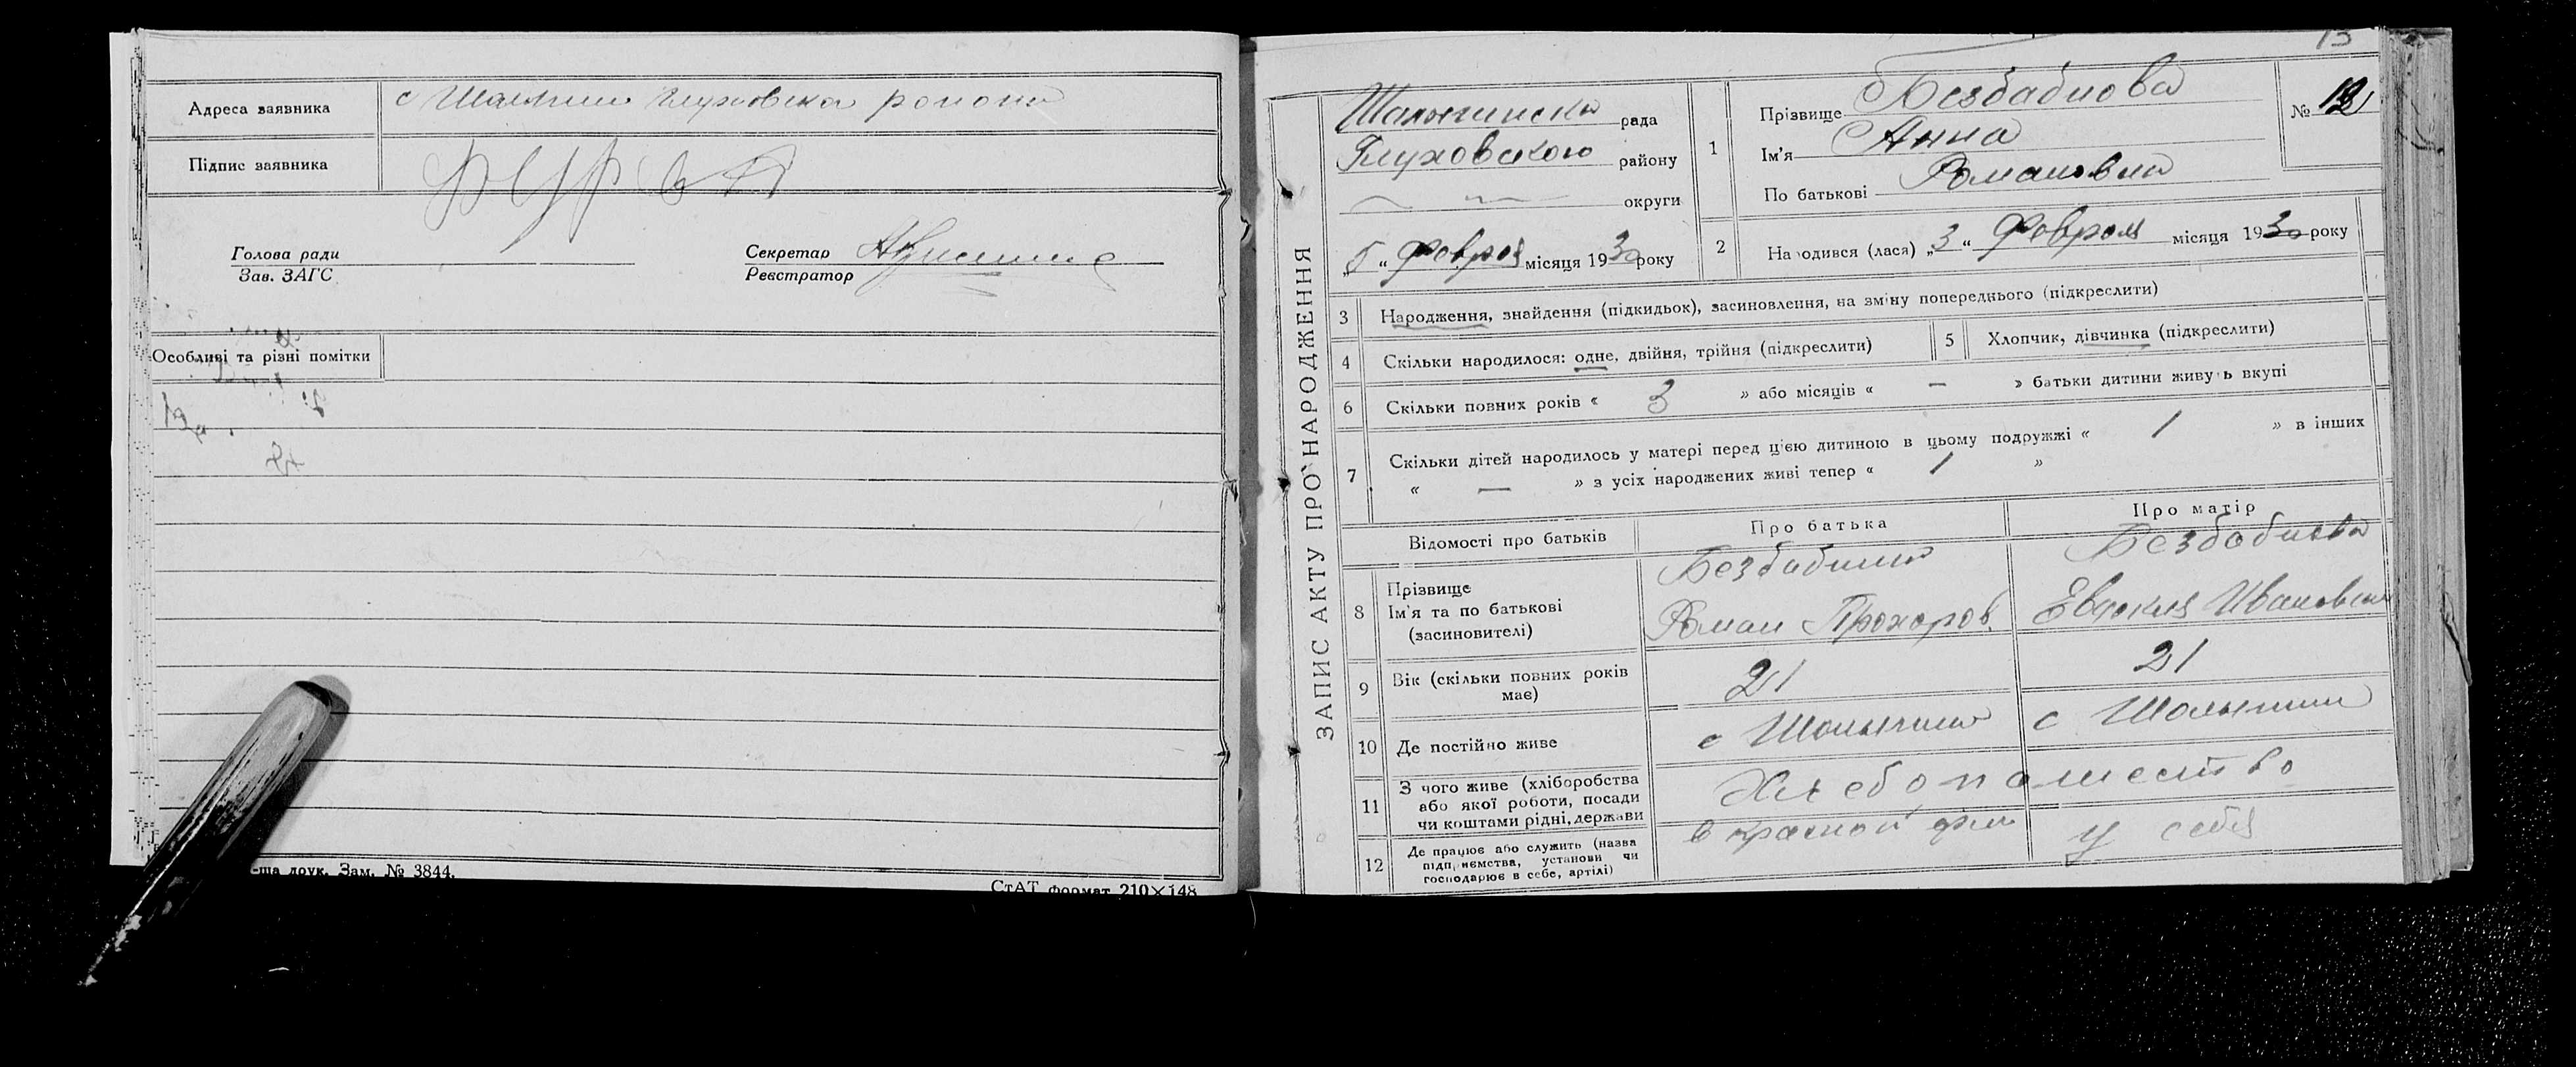 Адреса заявника с Шалыгин Глуховска района
Підпис заявника
Голова ради
Зав. ЗАГС
Секретар
Реєстратор
Особливі та різні помітки
-ша друк. Зам. № 3844.
СтАТ формат 210×148
13
ЗАПИС АКТУ ПРО НАРОДЖЕННЯ
Шалыгинска рада
Глуховского району
округи
„5“ Февраля місяця 1930 року
1
Прізвище Безбабнова
Ім'я Анна
По батькові Романовна
№ 12
2 Народився (лася) „3“ Февраля місяця 1930 року
3 Народження, знайдення (підкидьок), засиновлення, на зміну попереднього (підкреслити)
4 Скільки народилося: одне, двійня, трійня (підкреслити)
5 Хлопчик, дівчинка (підкреслити)
6 Скільки повних років « 3 » або місяців « — » батьки дитини живуть вкупі
7 Скільки дітей народилось у матері перед цією дитиною в цьому подружжі « 1 » в інших
« — » з усіх народжених живі тепер « 1 »
Відомості про батьків Про батька Про матір
8 Прізвище
Ім'я та по батькові
(засиновителі)
Безбабнов
Роман Прохоров.
Безбабнова
Евдокия Ивановна
9 Вік (скільки повних років
має)
21 21
10 Де постійно живе с Шалыгин с Шалыгин
11 З чого живе (хліборобства
або якої роботи, посади
чи коштами рідні, держави
Хлебопашество
12 Де працює або служить (назва
підприємства, установи чи
господарює в себе, артілі)
в красной у себя